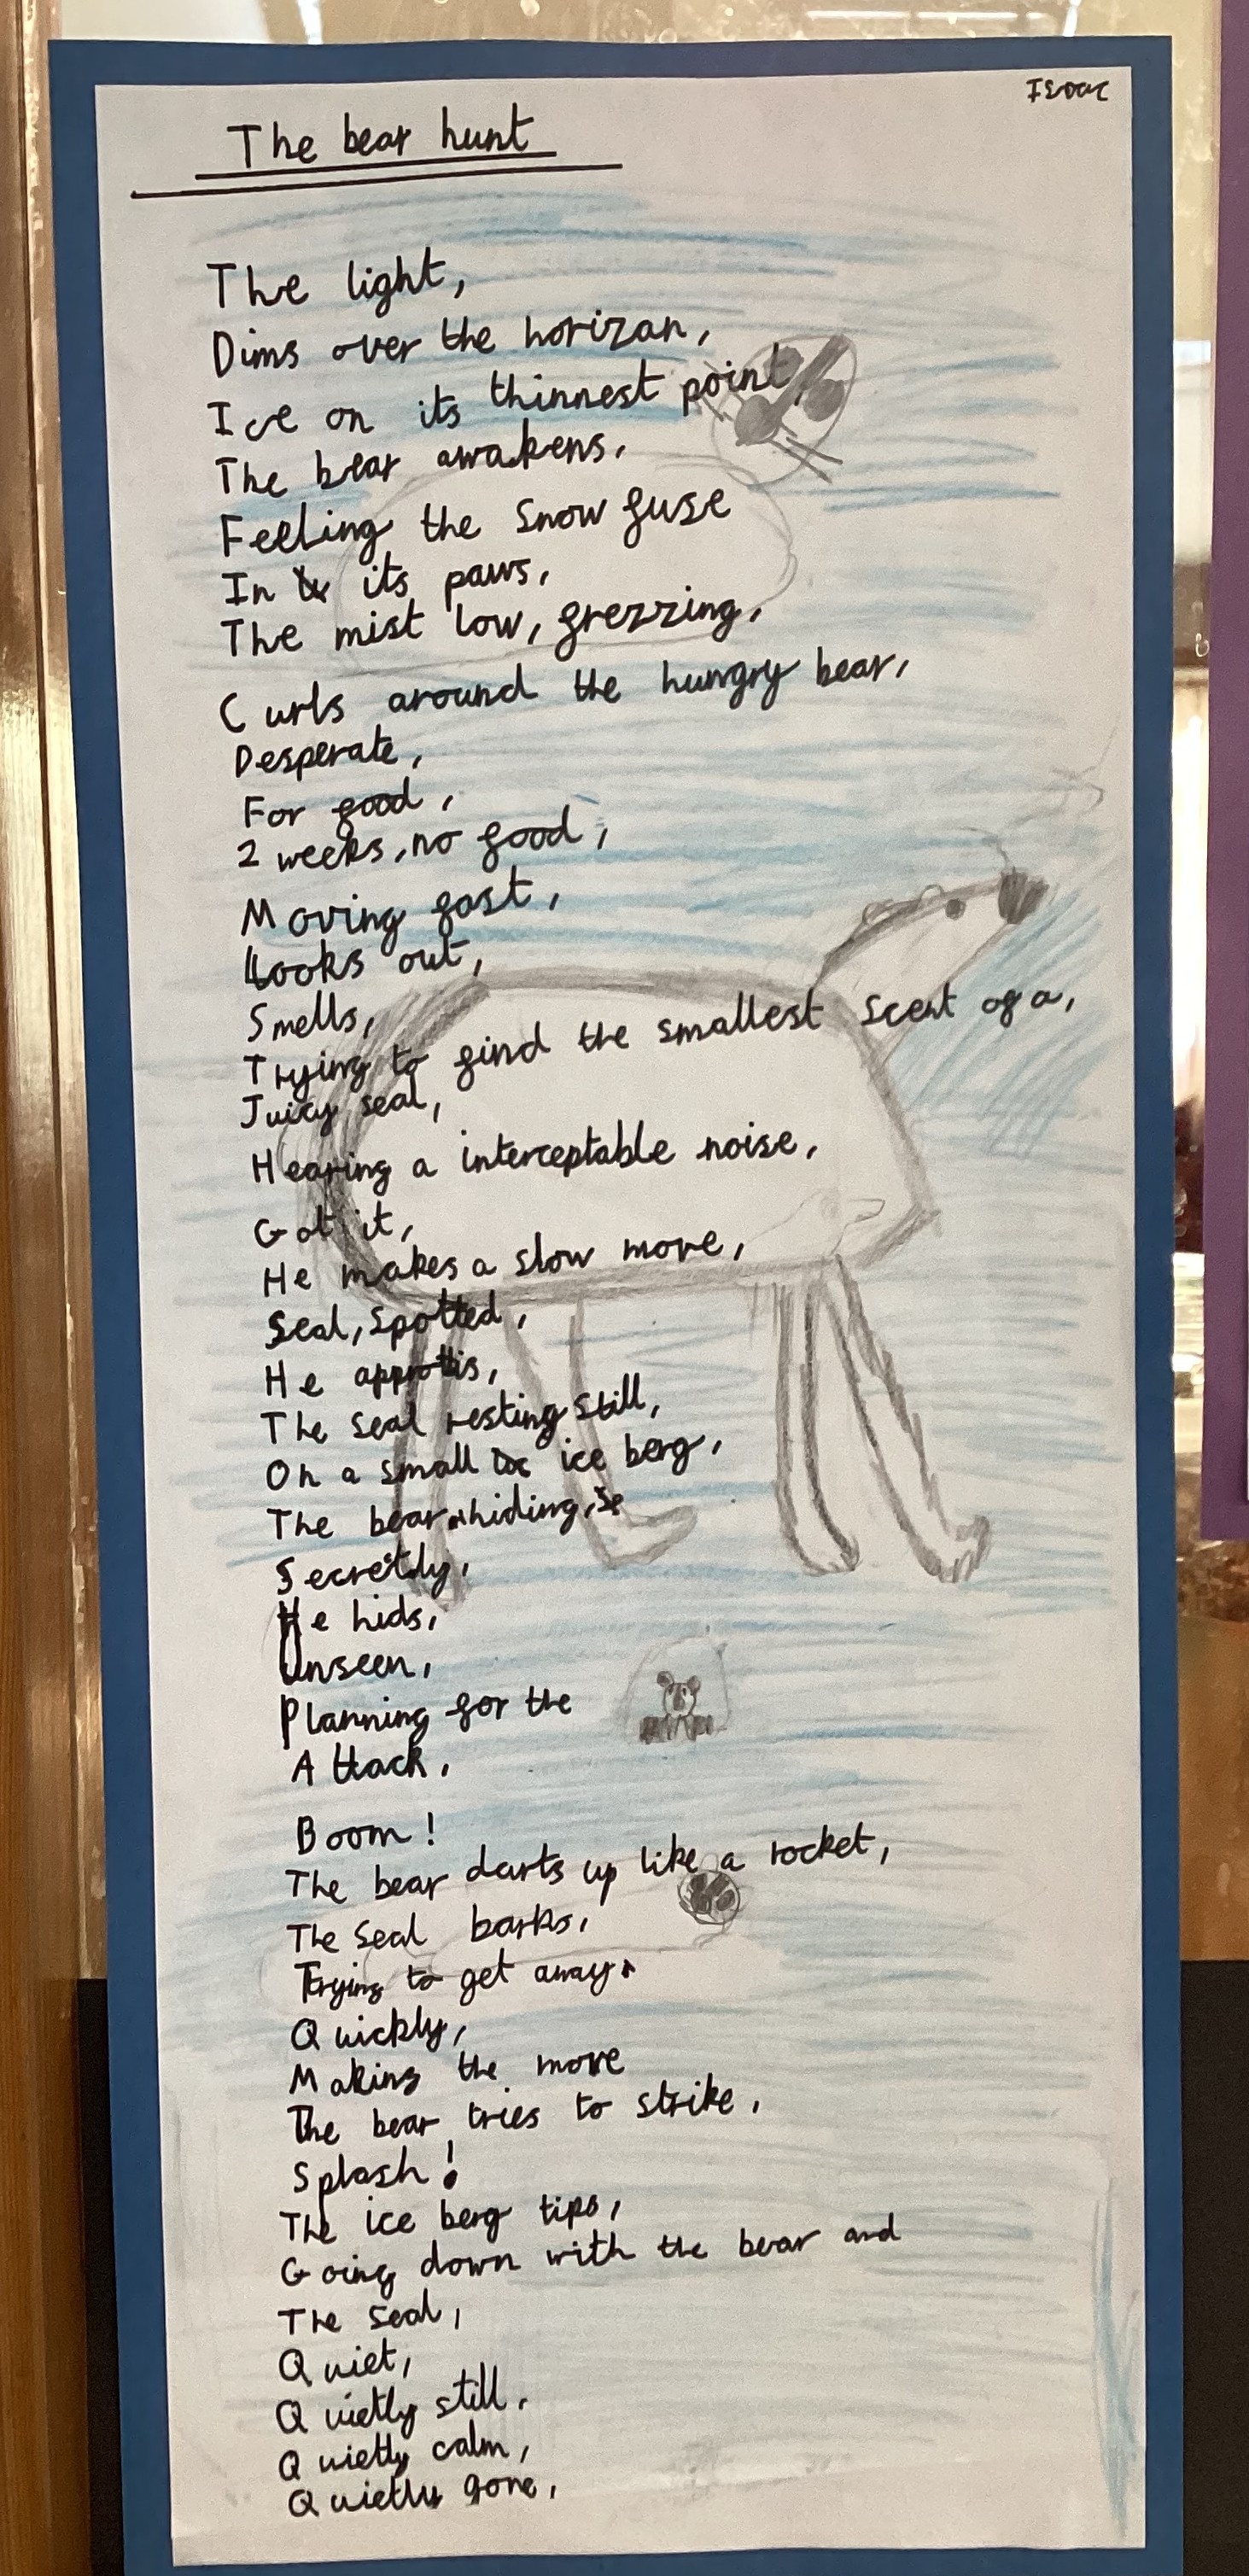 Isaac
The bear hunt
The light,
Dims over the horizan,
Ice on its thinnest point
The bear awakens,
Feeling the snow fuse
In its paws,
The mist low, frezzing,
Curls around the hungry bear,
Desperate,
For food,
2 weeks, no food,
Moving fast,
Looks out,
Smells,
Trying to find the smallest scent of a,
Juicy seal,
Hearing a interceptable noise,
Got it,
He makes a slow move,
Seal, spotted,
He
The seal resting still,
On a small ice berg,
The bear hiding,
Secretly,
He hids,
Unseen,
Planning for the
Attack,
Boom!
The bear darts up like a rocket,
The seal barks,
Trying to get away,
Quickly,
Making the move
The bear tries to strike,
Splash!
The ice berg tips,
Going down with the bear and
The seal,
Quiet,
Quietly still,
Quietly calm,
Quietly gone,